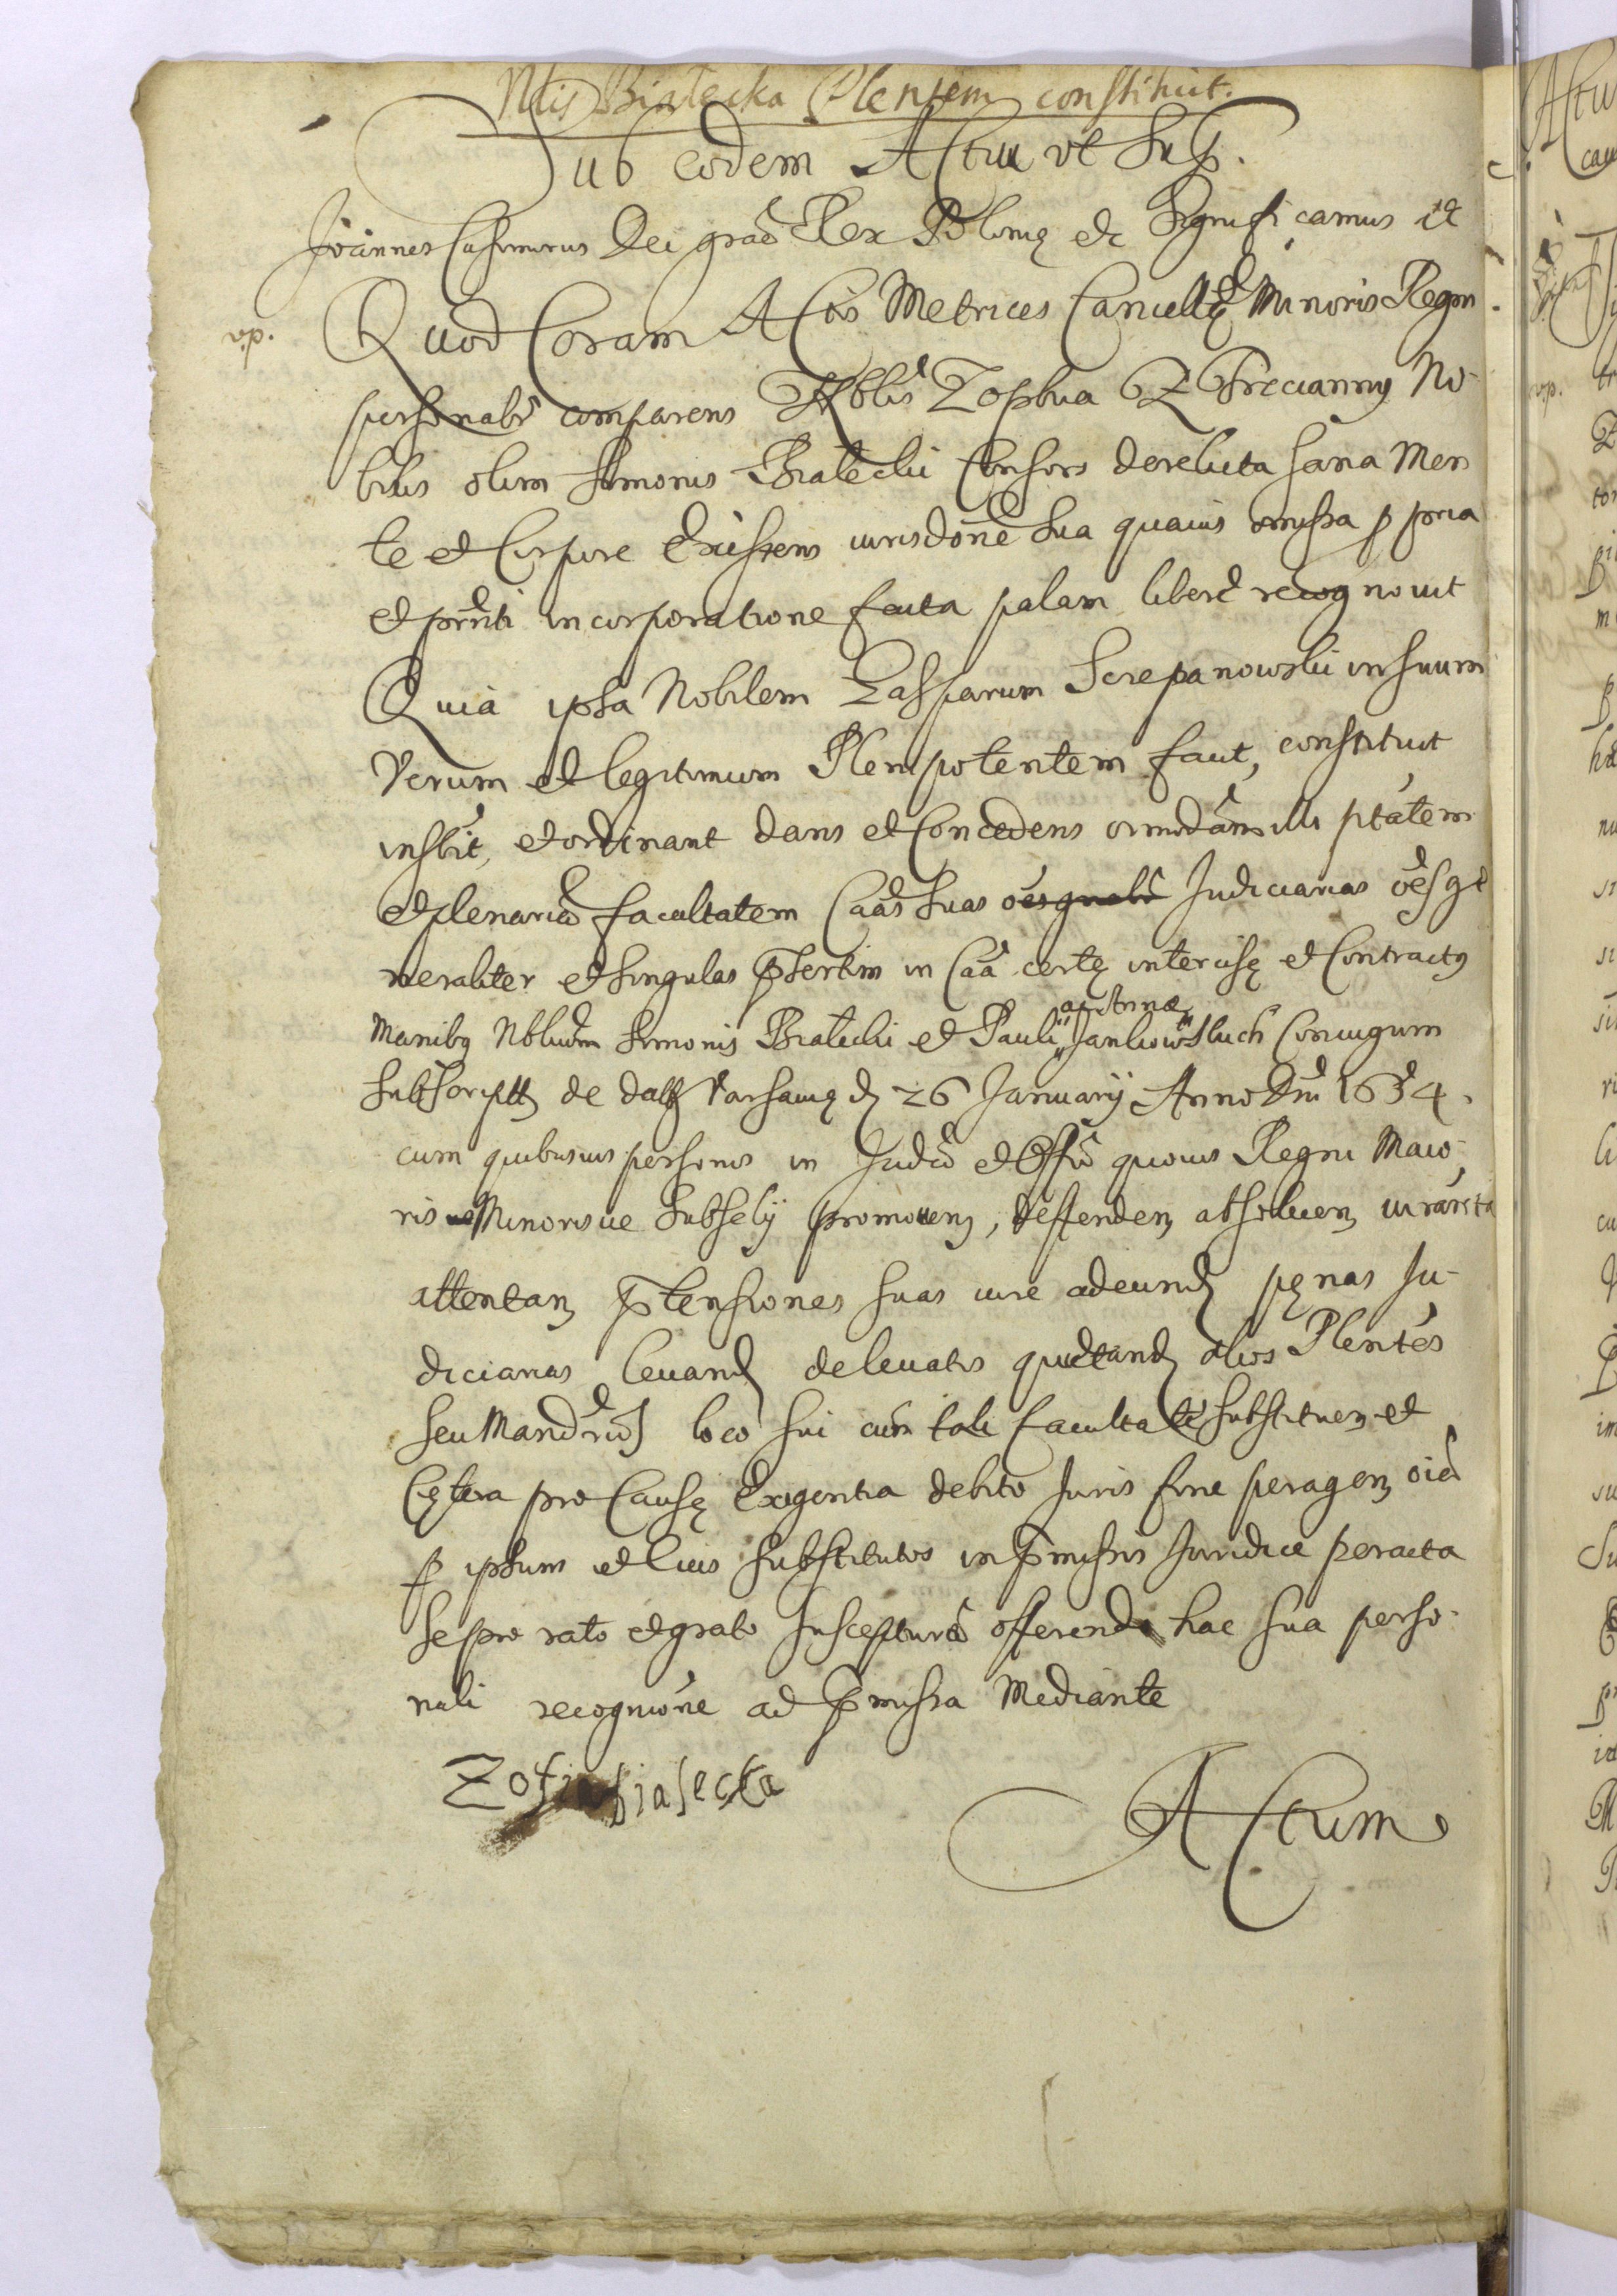 Nlis Białecka Plentem constituit.
Sub eodem Actu ut Sup.
Joannes Casimirus Dei graã Rex Polonię etc Significamus etc
vp.
Quod Coram Actis Metrices Cancellę Minoris Regni
personalr comparens Nblis Zophia No-
bilis olim Simonis Białecki Consors derelicta sana Men
te et Corpore Existens iurisdone sua quavis omissa p pria
et prnti incorporatione facta palam libere recognovit
Quia ipsa Nobilem Casparum Screpanowski in suum
Verum et legitimum Plenipotentem facit, constituit
instit, et ordinavit dans et Concedens omnodam illi ptatem
et plenariã facultatem Caãs suas oes gnalr Judiciarias oes ge
neraliter et singulas pSertim in Caã certę intercisę et Contractq
Manibq Nbliudm Simonis Białecki et Pauli ac Annæ Jankowskich Coniugum
Subscriptt de data Varsavię d 26 January Anno Dni 1634.
cum quibusuis personis in Judô et Offô quovis Regni Maio-
ris Minorisve Subsely promoven, deffenden absolven, iurãnta
attentan ptensiones suas iure adeund pęnas Ju-
diciarias levand de levatis quietand alios Plentes
seu Mandrios loco sui cum tali facultate substituen et
Cętera pro Causę Exigentia debito Juris fine peragen oia
p ipsum et Eius substitutos in pmissis Juridice peracta
se pro rato et grato suscepturã offerendo hac sua perso-
nali recognione ad pmissa Mediante
Zofia bialecka
Actum